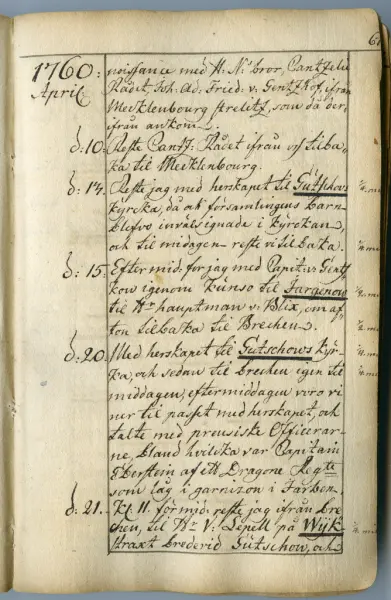 61
1760: noissance med H: N:s bror, Cantzelie
April Rådet, Joh: Ad: Fried: v: Gentzkof, ifrån
Mecklenbourg strelitz, som då der-
ifrån ankom.
d: 10. Reste Cantz: Rådet ifrån oss tilba-
ka til Mecklenbourg.
d: 14. Reste jag med herskapet til Gütschows ¼ mi
kyrcka, då alt församlingens barn
blefvo invälsignade i kyrckan,
och til middagen reste vi tilbaka. ¼ mi
d: 15. Eftermid: for jag med Capit: v: Gentz-
kow igenom Kunso til Jargenow
til Hr hauptman v: Blix, om af-
ton tilbaka til Brechen.
d: 20. Med herskapet til Gütschows kyr-
ka, och sedan til Brechen igen til
middagen, eftermiddagen voro vi
ner til passet med herskapet, och
talte med preusiske Officerar-
ne, bland hvilcka var Capitain
Eberstein af Dragone Regte
som låg i garnizon i Jarben.
d: 21. Kl: 11. förmid: reste jag ifrån Bre-
chen, til Hr v: Lepell på Wÿk
straxt brederid Gütschow, och